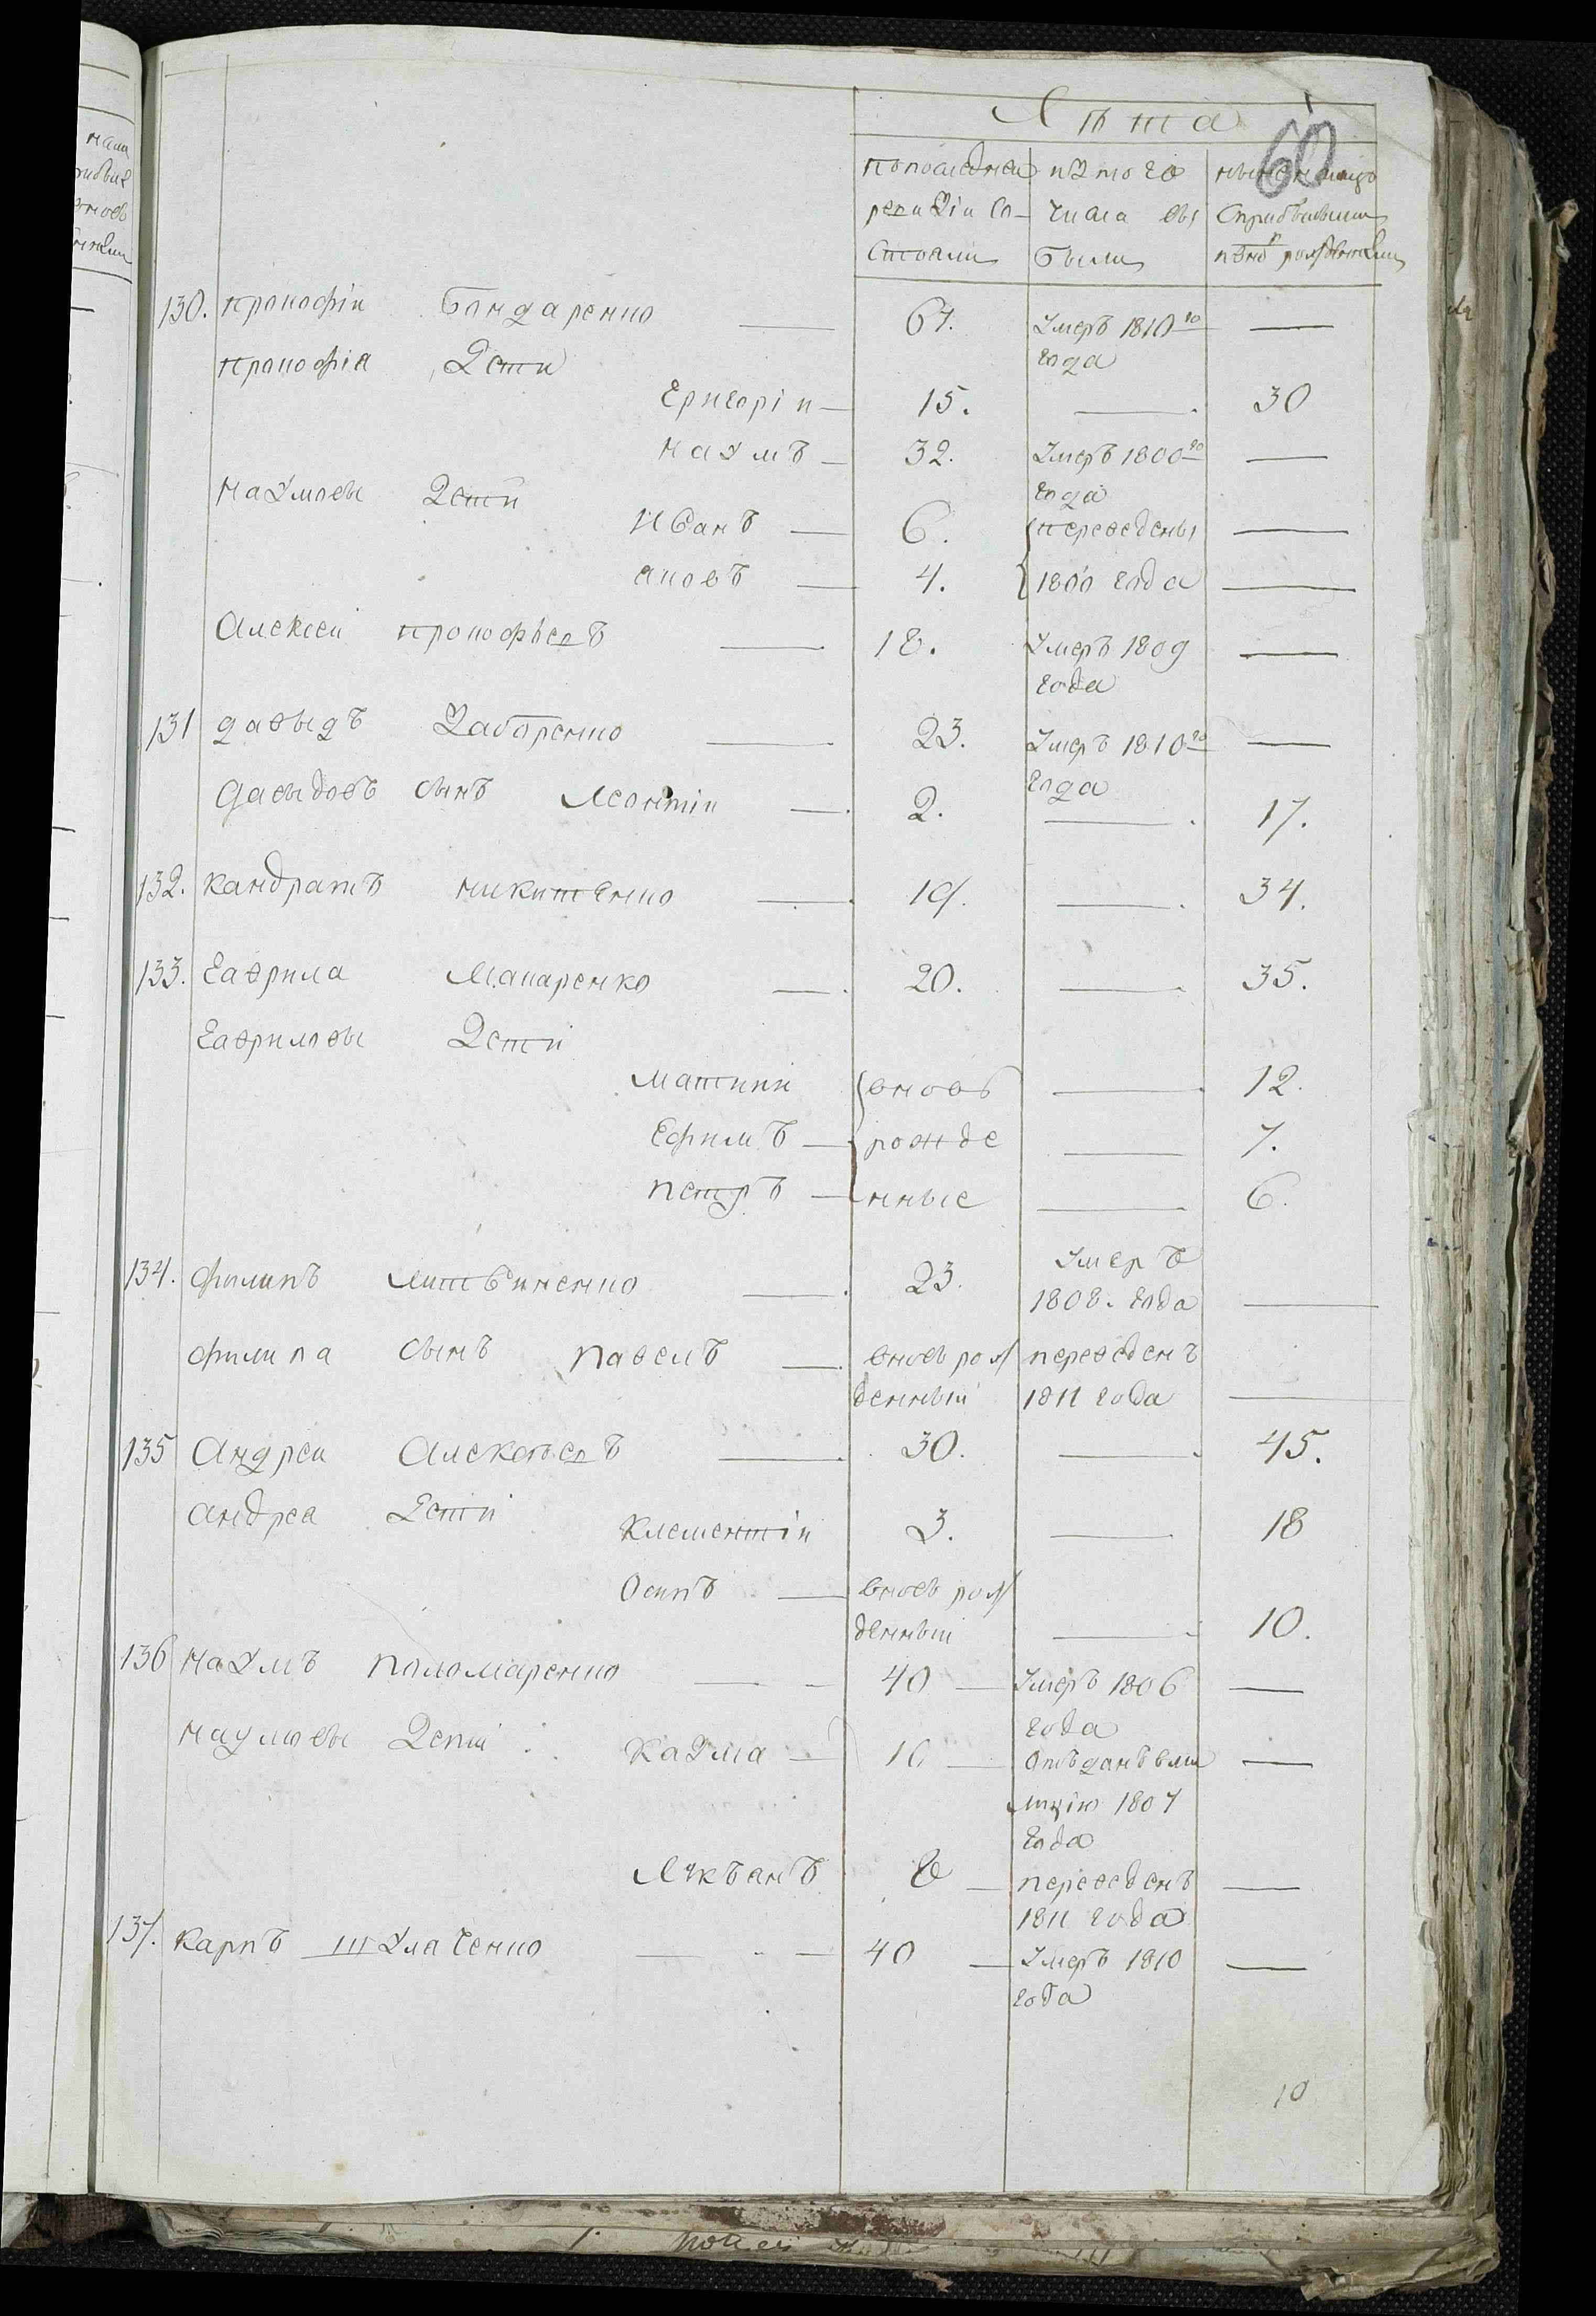 Лѣта
60
по последней из того нынѣ на лицо
ревизіи со- числа вы с прибылыми
стояли были и вновь рожденными
130. прокофіи бондаренко — 67. Умеръ 1810го —
года
прокофія дети
григоріи — 15. — 30
наумъ — 32. Умеръ 1800го —
года
наумовы дети
иванъ — 6. переведены —
яковъ — 4. 1800 года —
алексеи прокофьевъ — 18. Умеръ 1809 —
года
131 давыдъ Заборенко — 23. Умеръ 1810го —
года
давыдовъ сынъ леонтіи — 2. — 17.
132. кандратъ никитенко — 19. — 34.
133. гаврила макаренко — 20. — 35.
гавриловы дети
матвии вновь — 12.
ефимъ — рожде — 7.
петръ — нные — 6.
134. филипъ литвиненко — 23. Умеръ
1808. года —
филипа сынъ павелъ — вновь рож переведенъ
денныи 1811 года —
135 андреи алексѣевъ — 30. — 45.
андрея дети
климентіи 3. — 18
осипъ — вновь рож
денныи — 10.
136 наумъ паламаренко — 40 — Умеръ 1806 —
года
наумовы дети Казма — 16 — отъданъ в ми —
лицію 1807
года
лукъянъ 8 — переведенъ —
1811 года
137. карпъ шУлаченко — 40 — Умеръ 1810 —
года
10